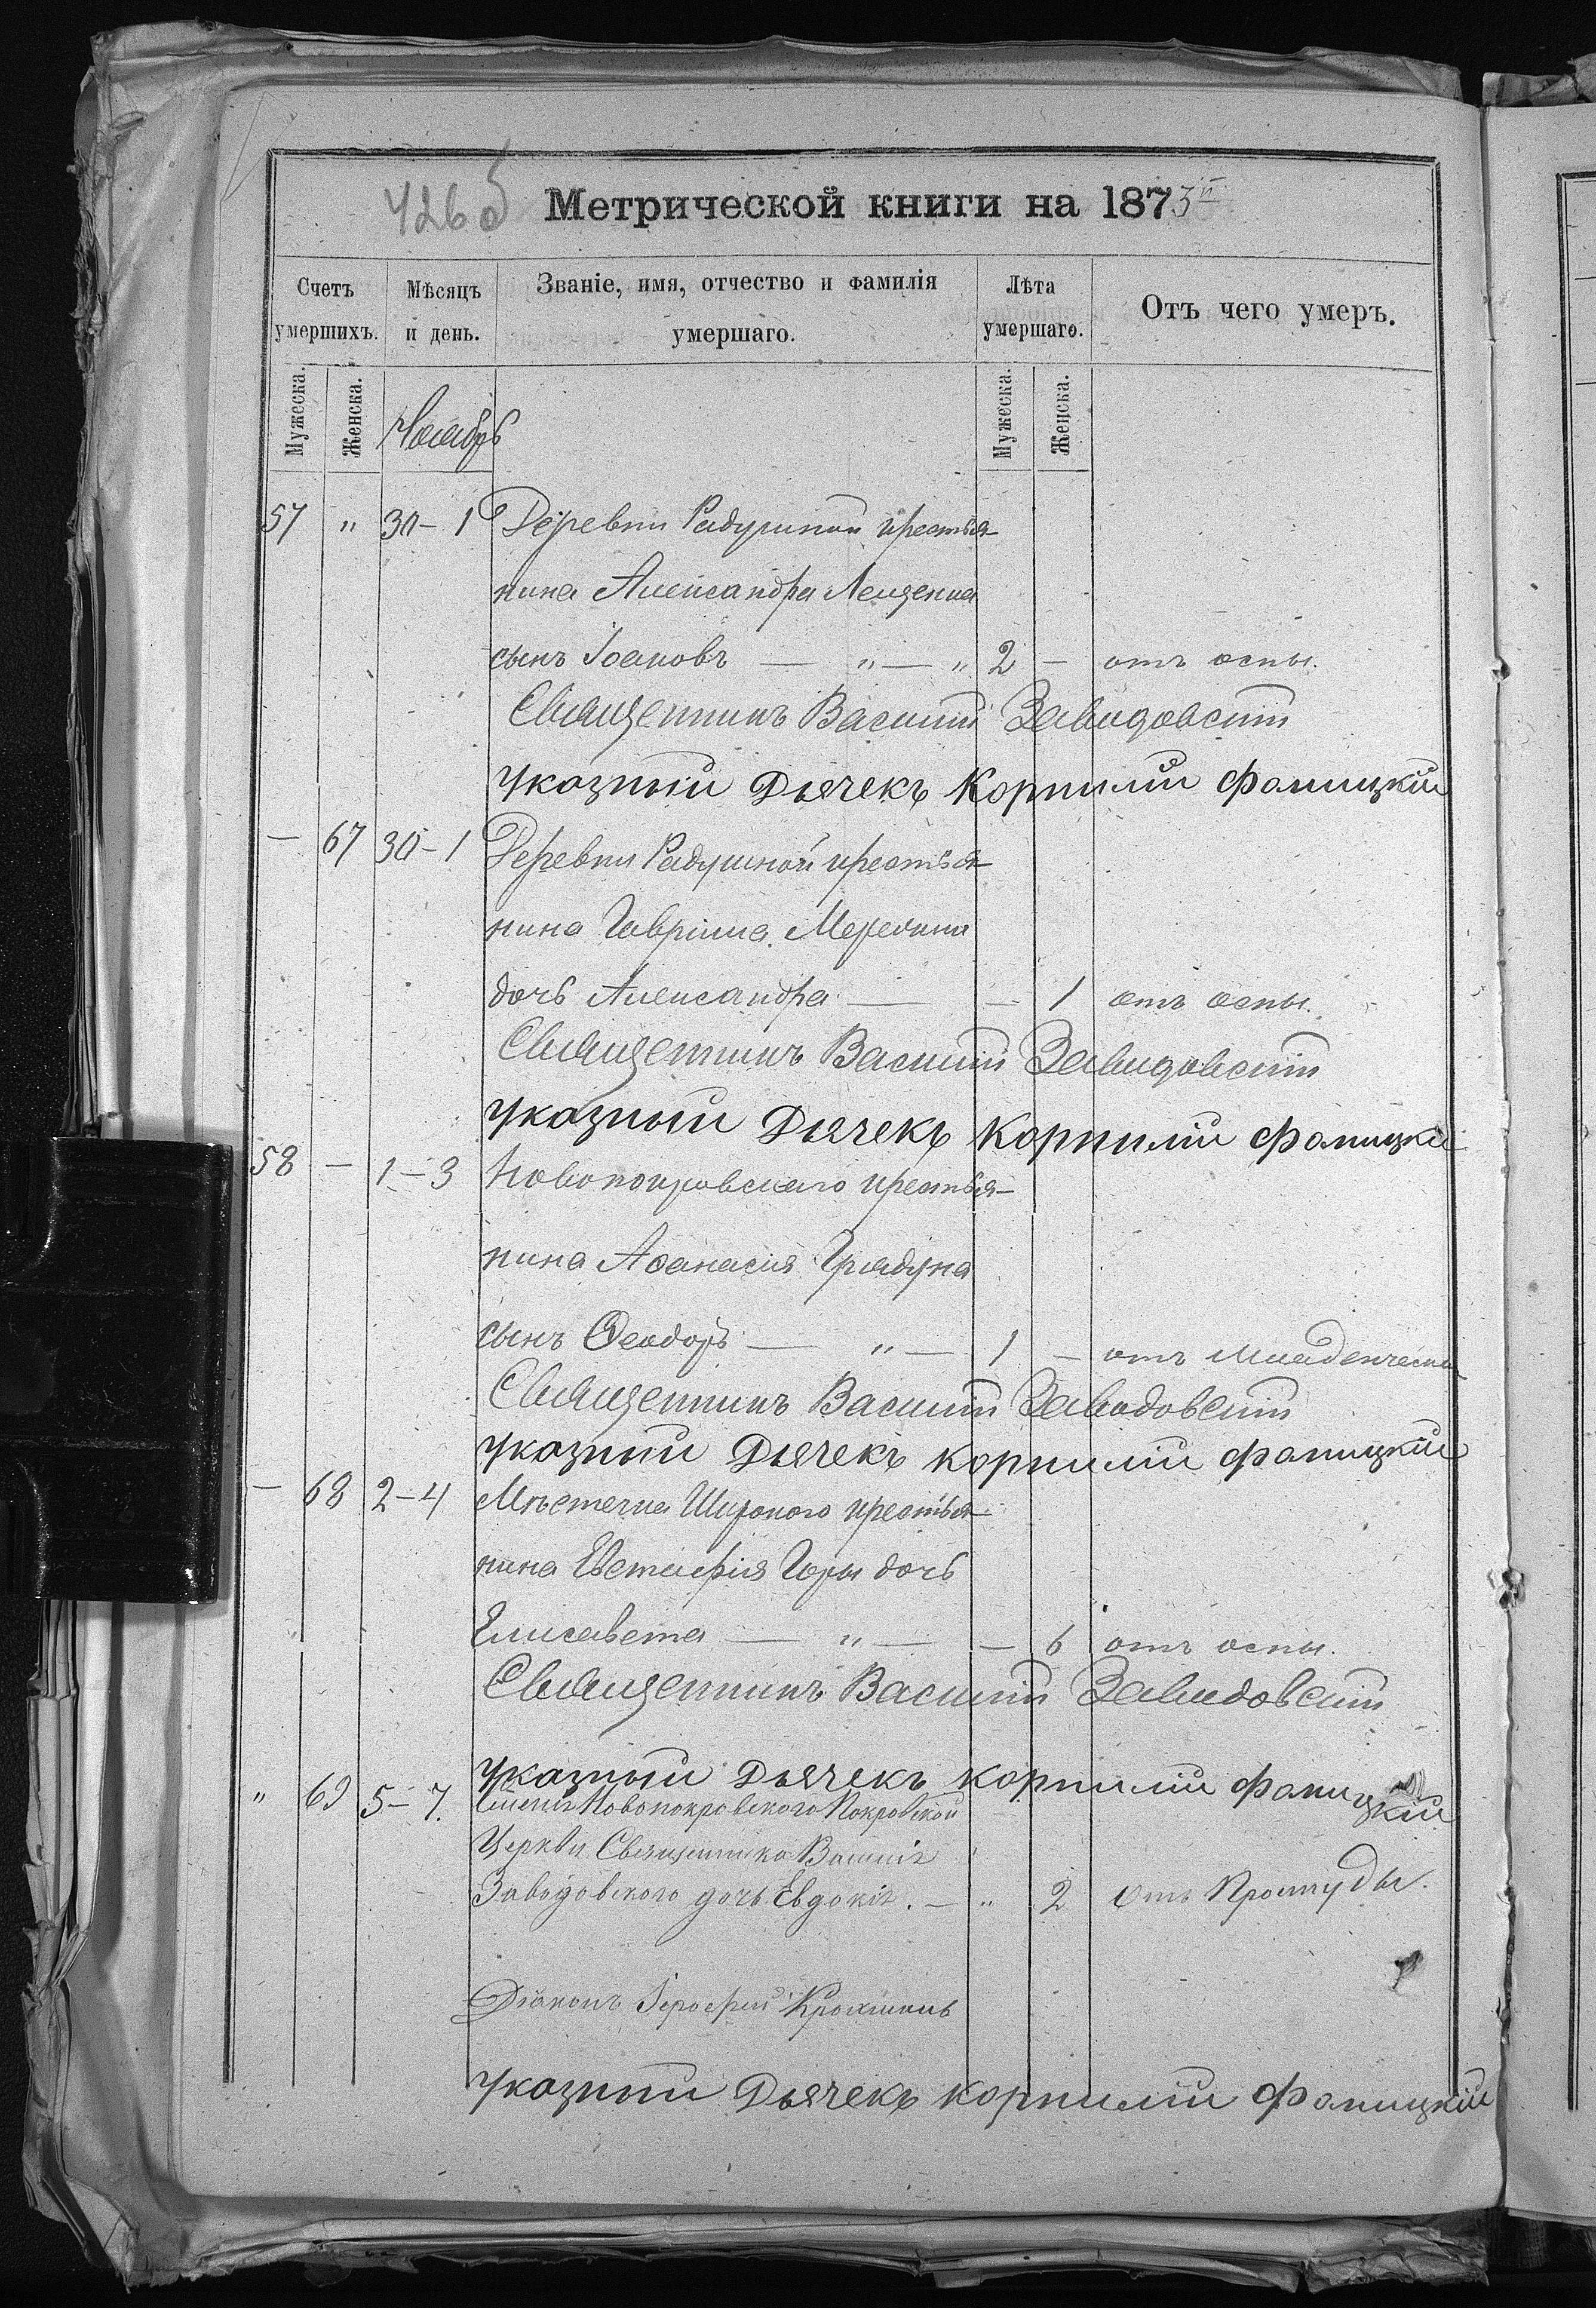 426 об
Метрической книги на 1873й
Счетъ умершихъ.
Мѣсяцъ и день.
Званіе, имя, отчество и фамилія умершаго.
Лѣта умершаго.
Отъ чего умеръ.
Мужеска. Женска. Ноябрь Мужеска. Женска.
57 " 30-1 Деревни Радушной крестья-
нина Александра Лещенка
сынъ Іаковъ — " — " 2 — отъ оспы.
Священникъ Василій Завидовскій
Указный Дьячекъ Корнилій Фаницкій
— 67 30-1 Деревни Радушной крестья-
нина Гавріила
дочь Александра — — 1 отъ оспы.
Священникъ Василій Завидовскій
Указный Дьячекъ Корнилій Фаницкій
58 — 1-3 Новопокровскаго крестья-
нина Аѳанасія
сынъ Ѳеодоръ — " — 1 — отъ младенческой
Священникъ Василій Завадовскій
Указный Дьячекъ Корнилій Фаницкій
— 68 2-4 Мѣстечка Широкого крестья-
нина Евстафія Горы дочь
Елисавета — " — — 6 отъ оспы.
Священникъ Василій Завадовскій
Указный Дьячекъ Корнилій Фаницкій
" 69 5-7. Новопокровского Покровской
Церкви Священника Василія
Завадовского дочь Евдокія. — " 2 Отъ Простуды.
Діаконъ Іероѳей
Указный Дьячекъ Корнилій Фаницкій